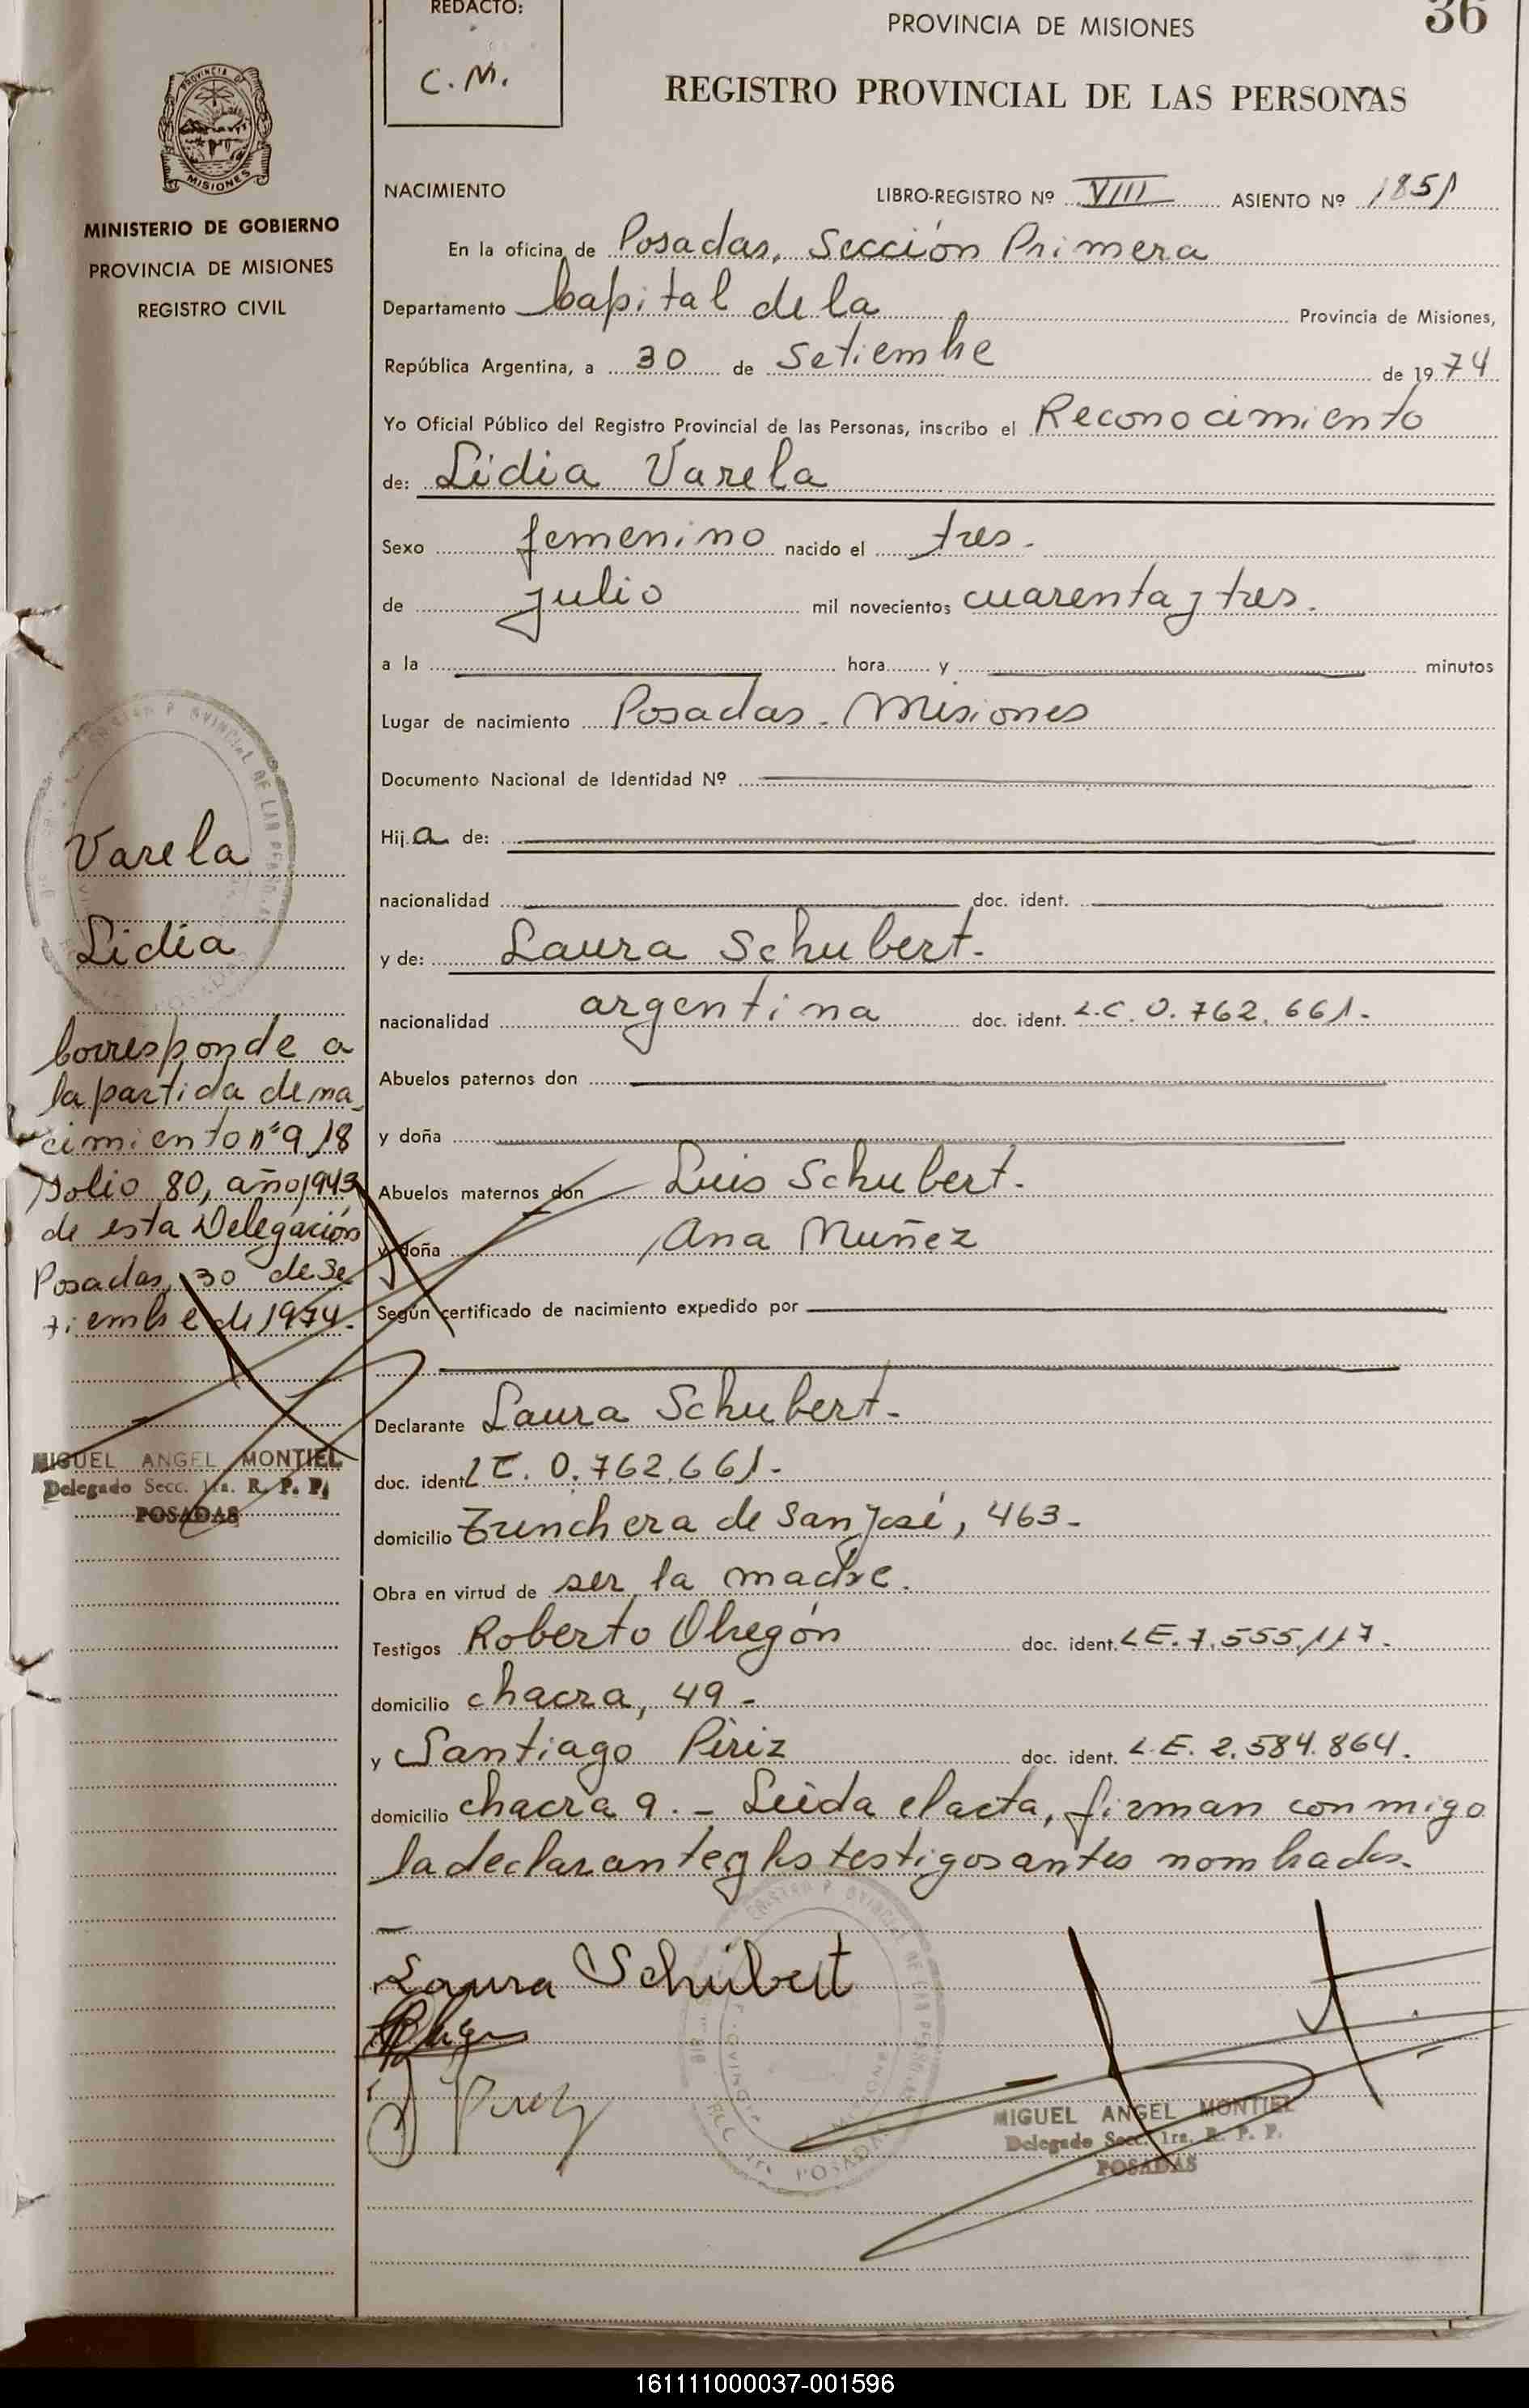 REDACTO:
C.M.
PROVINCIA DE MISIONES
36
REGISTRO PROVINCIAL DE LAS PERSONAS
MISIONES
MINISTERIO DE GOBIERNO
PROVINCIA DE MISIONES
REGISTRO CIVIL
NACIMIENTO LIBRO-REGISTRO Nº VIII ASIENTO Nº 1851
En la oficina de Posadas, Sección Primera
Departamento Capital de la Provincia de Misiones,
República Argentina, a 30 de Setiembre de 1974
Yo Oficial Público del Registro Provincial de las Personas, inscribo el Reconocimiento
de: Lidia Varela
Sexo femenino nacido el tres.
de julio mil novecientos cuarenta y tres.
a la hora y minutos
Lugar de nacimiento Posadas. Misiones
Documento Nacional de Identidad Nº
Hija de:
nacionalidad doc. ident.
y de: Laura Schubert.
nacionalidad argentina doc. ident. L.C. 0.762.661.
Abuelos paternos don
y doña
Abuelos maternos don Luis Schubert.
y doña Ana Muñez
Según certificado de nacimiento expedido por
Declarante Laura Schubert.
doc. ident. L C. 0.762.661.
domicilio Trinchera de San José, 463.
Obra en virtud de ser la madre.
Testigos Roberto Obregón doc. ident. L E. 7.555.117.
domicilio chacra, 49.
y Santiago Píriz doc. ident. L.E. 2.584.864.
domicilio chacra 9. - Leída el acta, firman conmigo
la declarante y los testigos antes nombrados.
Varela
Lidia
Corresponde a
la partida de na
cimiento nº 918
folio 80, año 1943
de esta Delegación
Posadas, 30 de Se
tiembre de 1974.
MIGUEL ANGEL MONTIEL
Delegado Secc. 1ra. R. P. P.
POSADAS
Laura Schubert
MIGUEL ANGEL MONTIEL
Delegado Secc. 1ra. R. P. P.
POSADAS
161111000037-001596